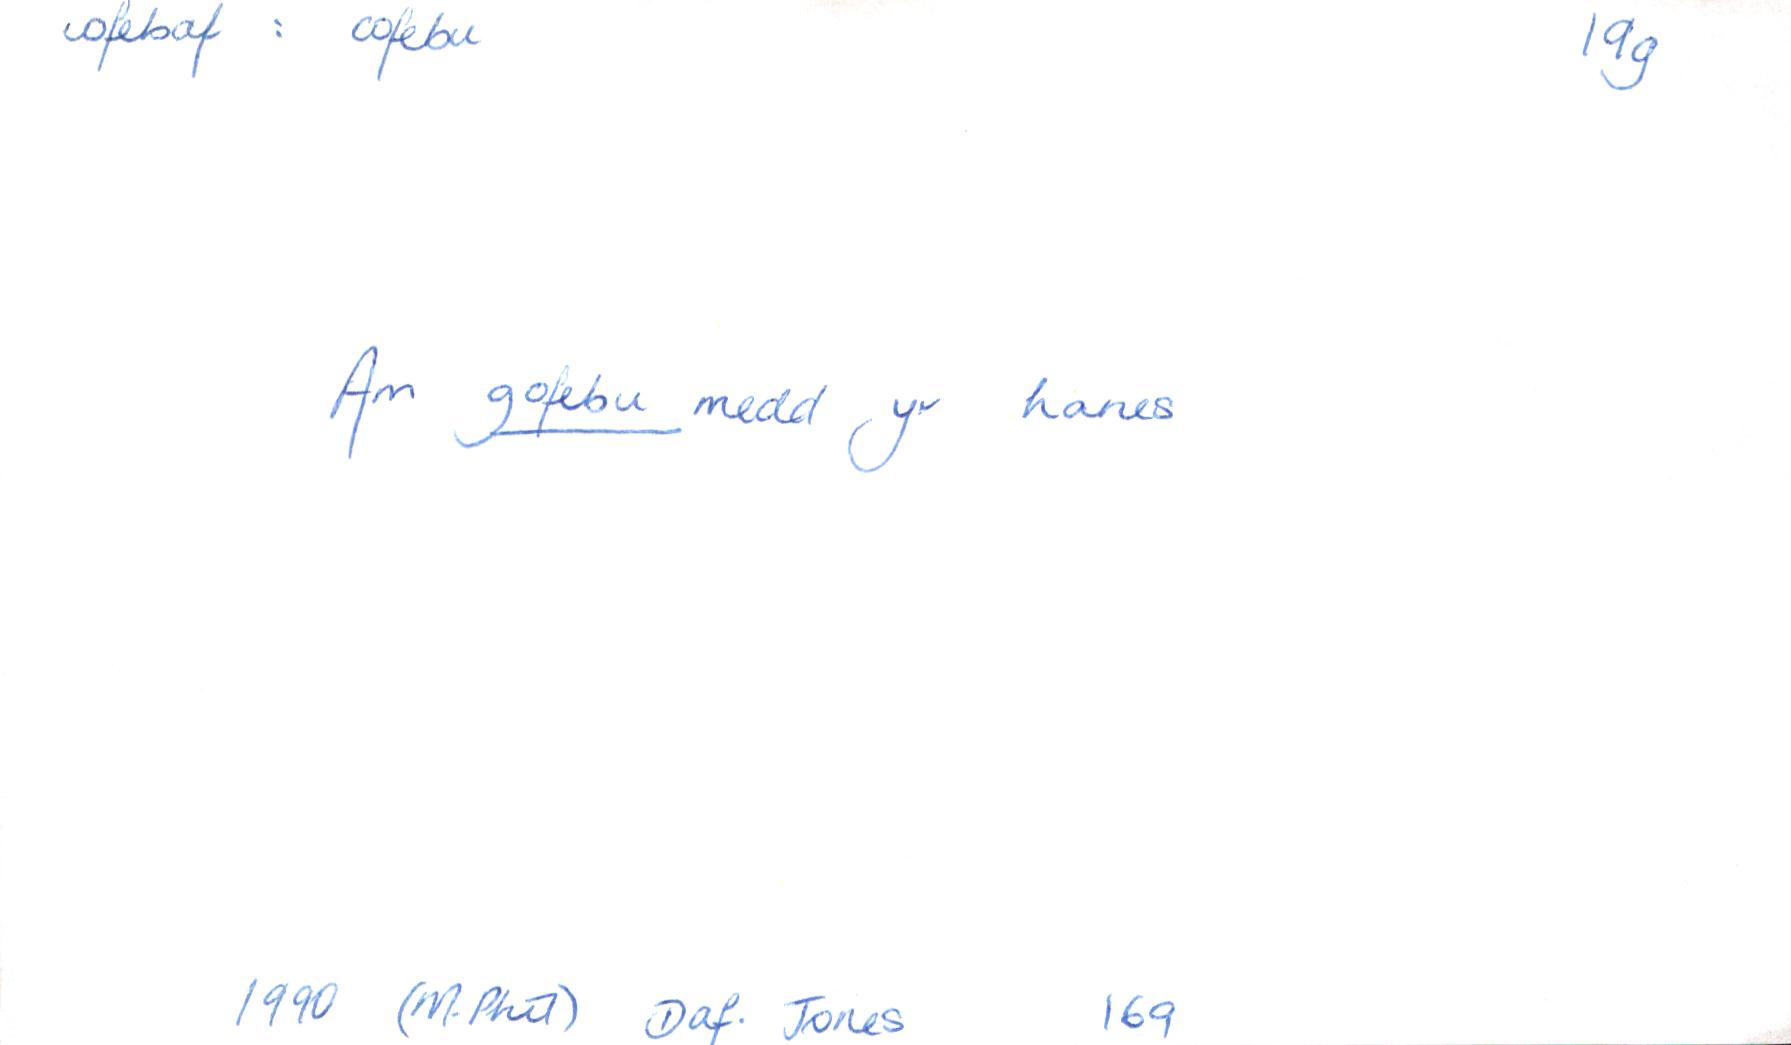 cofebaf : cofebu 19g
Am gofebu medd yr hanes
1990 (M.Phil) Daf. Jones 169